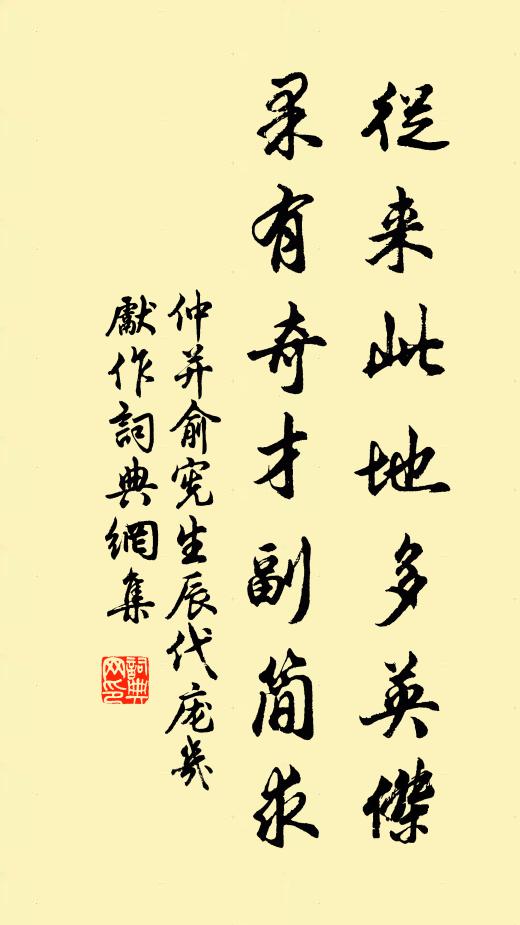 從来此地多英傑
果有奇才副简求
仲并俞宪生辰代庞幾
獻作詞典網集
詞典网印